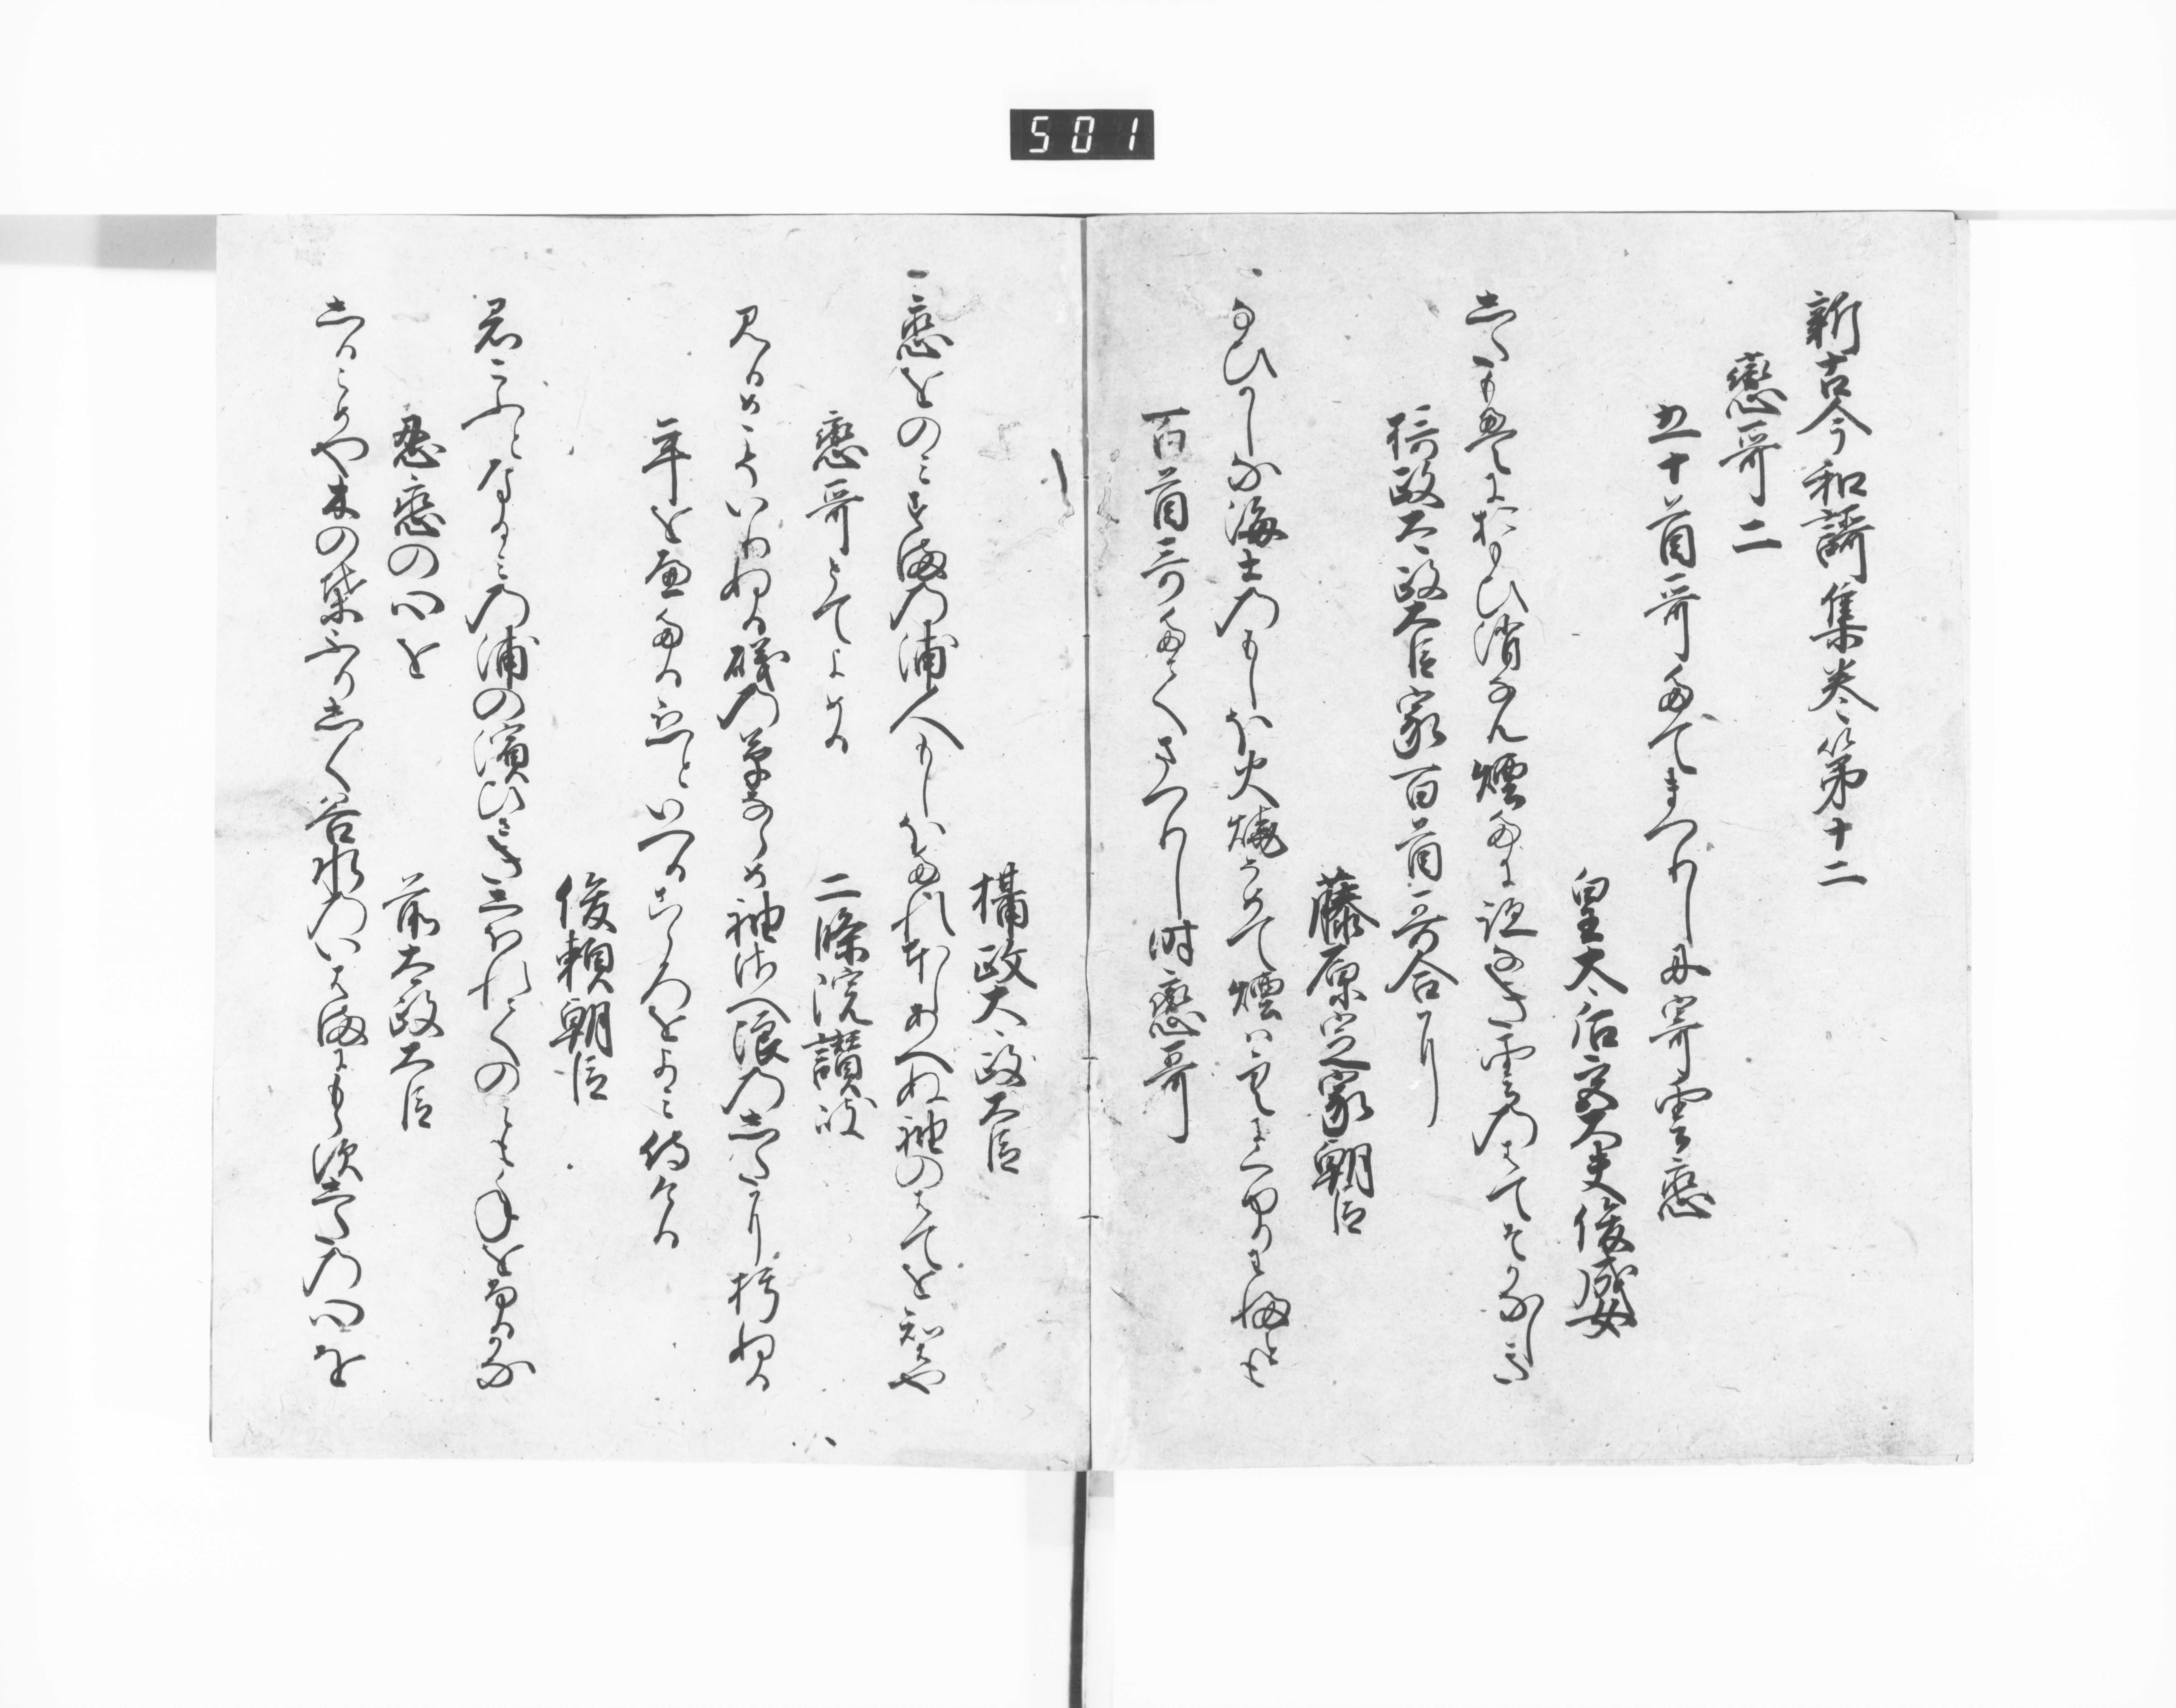 501
新古今和謌集巻第十二
戀哥二
五十首哥たてまつりしに寄雲戀
皇太后宮大夫俊成女
したもえにおもひ消なん煙たに跡なき雲のはてそかなしき
摂政太政大臣家百首哥合に
藤原定家朝臣
なひかしな海士のもしほ火焼そめて煙は空にくゆりわふとも
百首哥たてまつりし時戀哥
摂政太政大臣
戀をのみすまの浦人もしほたれほしあへぬ袖のはてを知はや
戀哥とてよめる
二條院讃岐
みるめこそいりぬる礒の草ならめ袖さへ浪のしたに朽ぬる
年をへたる恋といへるこゝろをよみ侍ける
俊頼朝臣
君こふとなるみの浦の濱ひさきしほれてのみも年をふるかな
忍戀の心を
前太政大臣
しるらめや木の葉ふりしく谷水のいはまにもらす下の心を